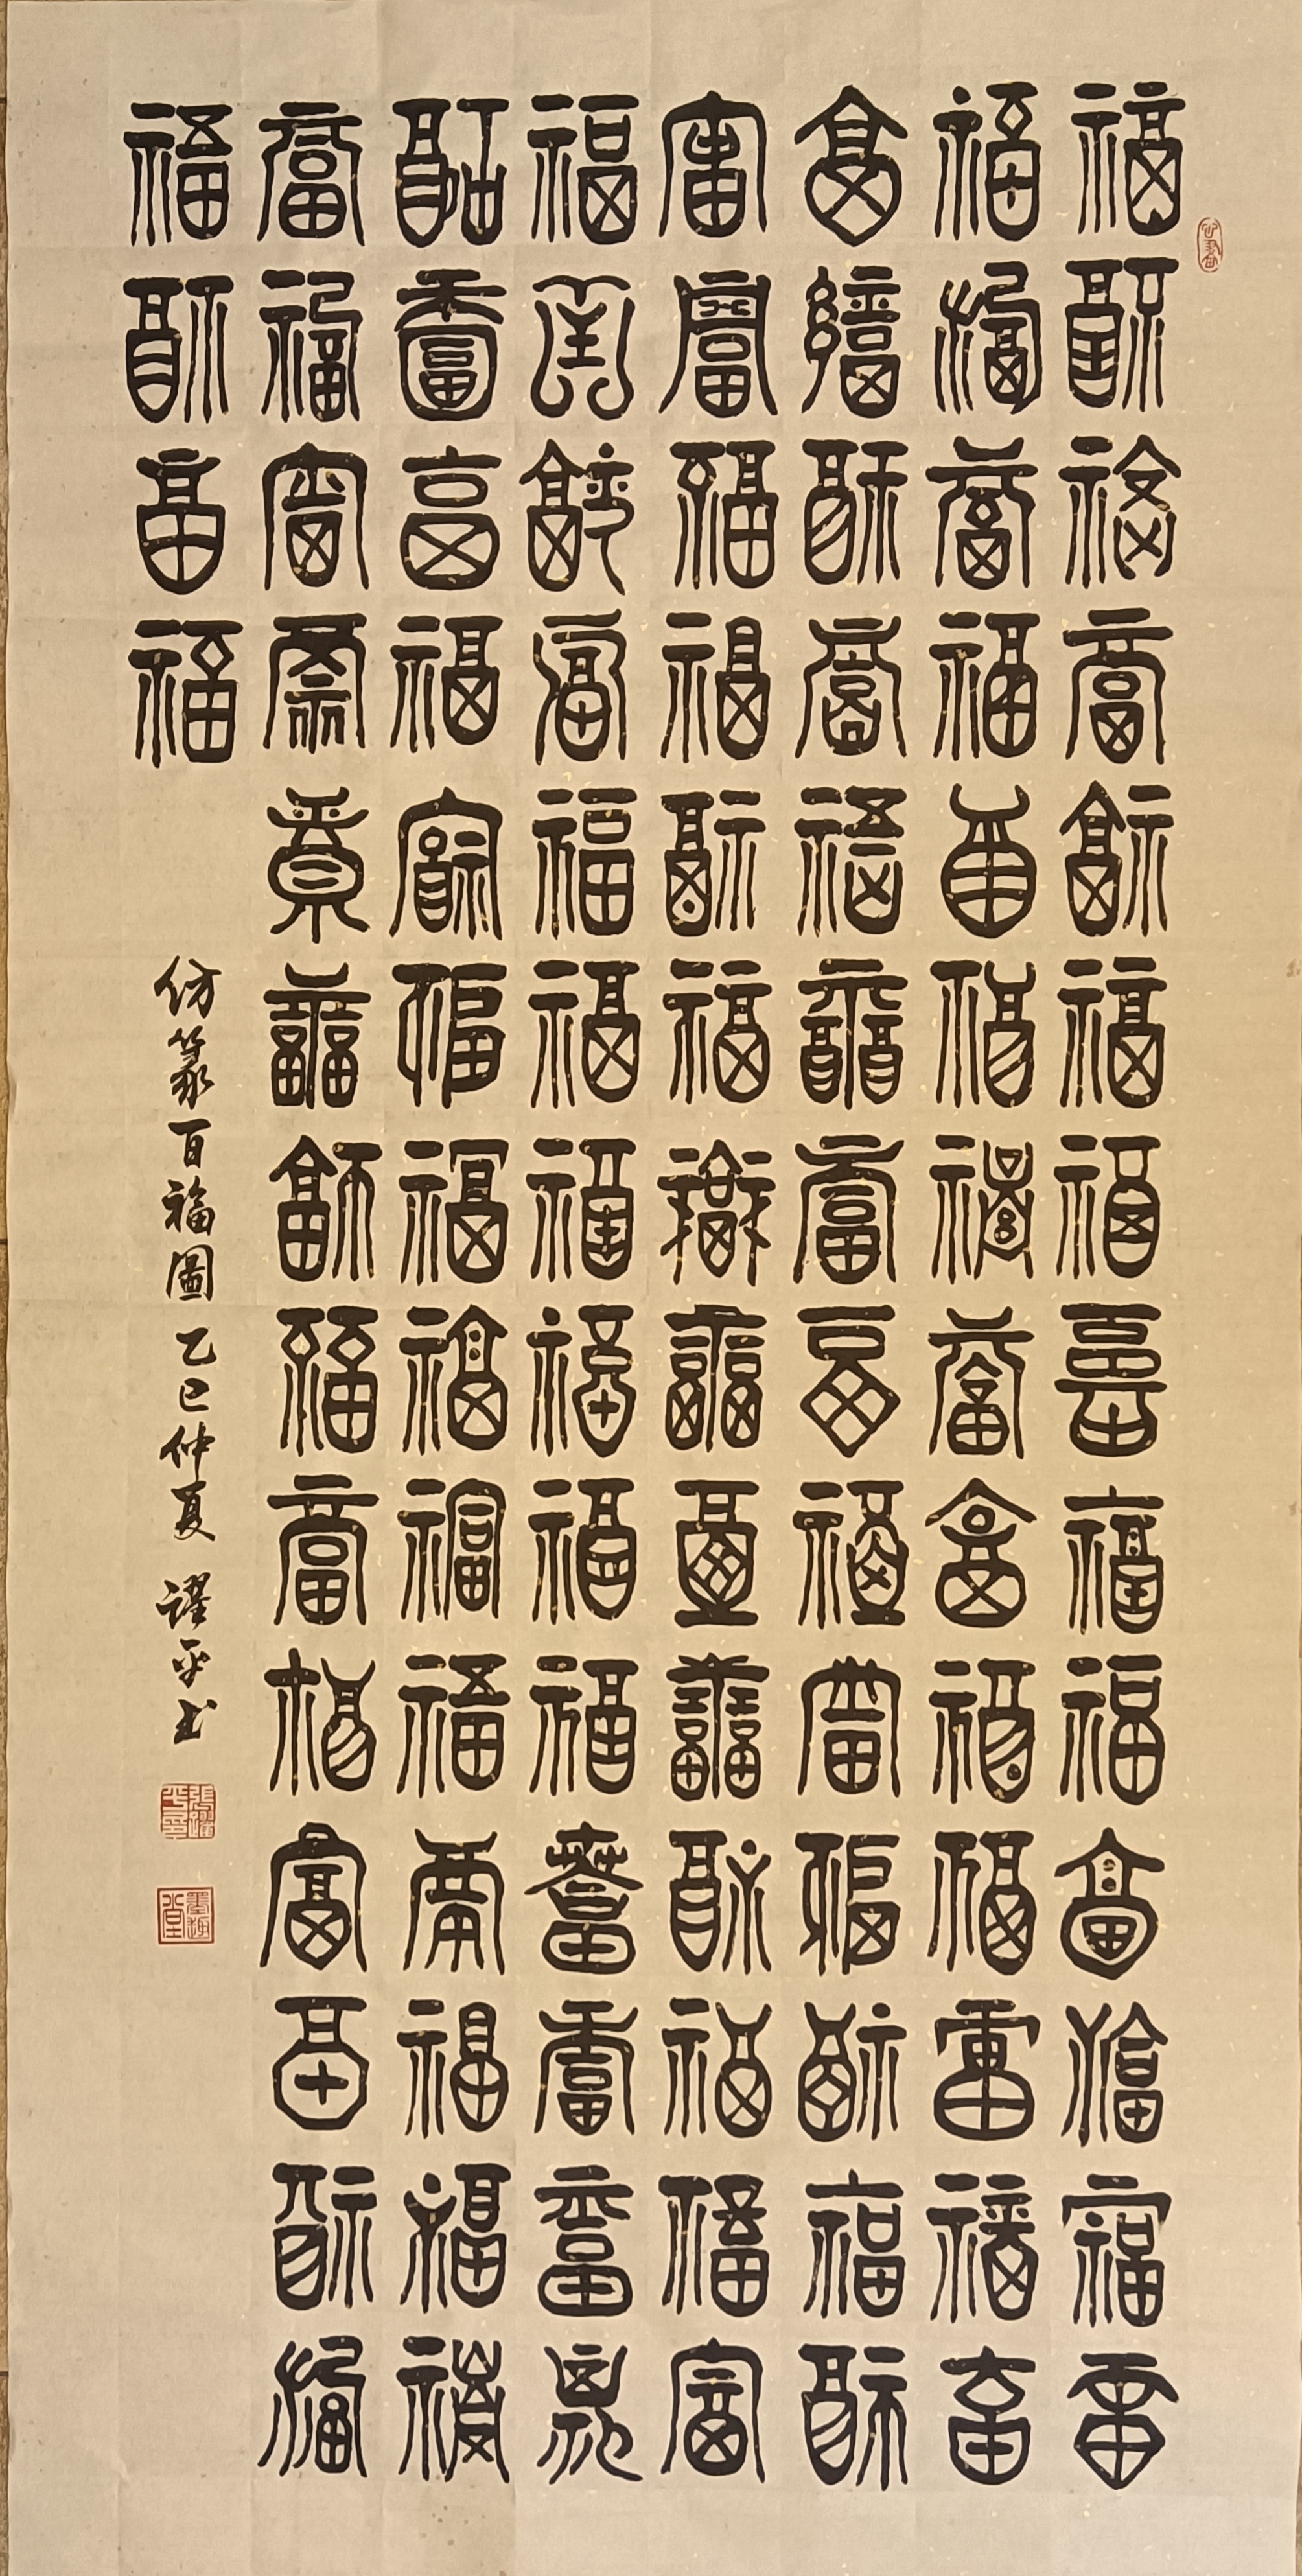 福福福福福福福福福福福福福福
福福福福福福福福福福福福福福
福福福福福福福福福福福福福福
福福福福福福福福福福福福福福
福福福福福福福福福福福福福福
福福福福福福福福福福福福福福
福福福福福福福福福福福福福福
福福福福
仿篆百福圖 乙巳仲夏 躍平书